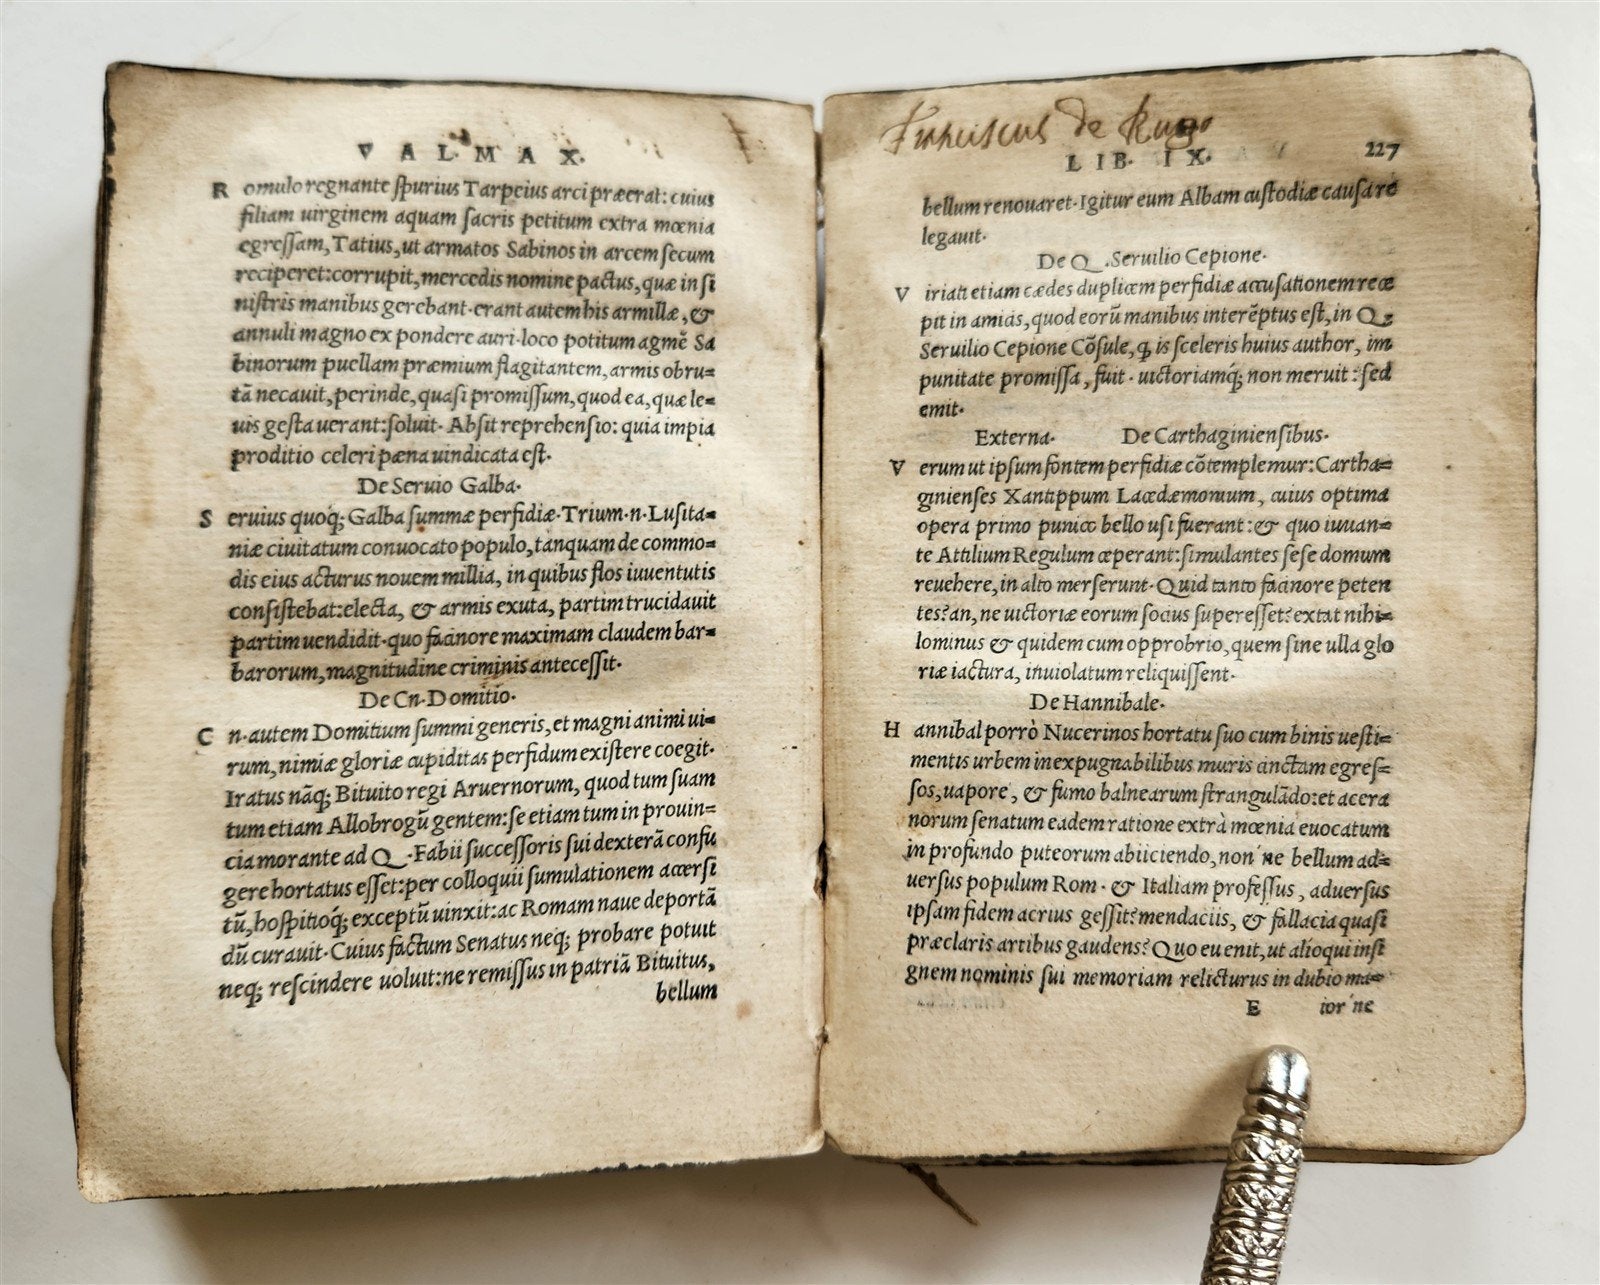 VAL. MAX.
Romulo regnante ſpurius Tarpeius arci præerat: cuius
filiam uirginem aquam ſacris petitum extra mœnia
egreſſam, Tatius, ut armatos Sabinos in arcem ſecum
reciperet: corrupit, mercedis nomine pactus, quæ in ſi
niſtris manibus gerebant. erant autem his armillæ, &
annuli magno ex pondere auri. loco potitum agmē Sa
binorum puellam præmium flagitantem, armis obru=
tā necauit, perinde, quaſi promiſſum, quod ea, quæ le=
uis geſta uerant: ſoluit. Abſit reprehenſio: quia impia
proditio celeri pæna uindicata eſt.
De Seruio Galba.
Seruius quoq; Galba ſummæ perfidiæ. Trium. n. Luſita=
niæ ciuitatum conuocato populo, tanquam de commo=
dis eius acturus nouem millia, in quibus flos iuuentutis
conſiſtebat: electa, & armis exuta, partim trucidauit
partim uendidit. quo facinore maximam claudem bar=
barorum, magnitudine criminis anteceſſit.
De Cn. Domitio.
Cn. autem Domitium ſummi generis, et magni animi ui=
rum, nimiæ gloriæ cupiditas perfidum exiſtere coegit.
Iratus nāq; Bituito regi Aruernorum, quod tum ſuam
tum etiam Allobrogū gentem: ſe etiam tum in prouin=
cia morante ad Q. Fabii ſucceſſoris ſui dexterā confu
gere hortatus eſſet: per colloquii ſumulationem accerſi
tū, hoſpitioq; exceptū uinxit: ac Romam naue deportā
dū curauit. Cuius factum Senatus neq; probare potuit
neq; reſcindere uoluit: ne remiſſus in patriā Bituitus,
bellum
Franciscus de
LIB. IX. 227
bellum renouaret. Igitur eum Albam cuſtodiæ cauſa re
legauit.
De Q. Seruilio Cepione.
Viriati etiam cædes duplicem perfidiæ accuſationem rece
pit in amicis, quod eorū manibus interēptus eſt, in Q.
Seruilio Cepione Cōſule, q, is ſceleris huius author, im
punitate promiſſa, fuit. uictoriamq; non meruit: ſed
emit.
Externa. De Carthaginienſibus.
Verum ut ipſum fontem perfidiæ cōtemplemur: Cartha=
ginienſes Xantippum Lacedæmonium, cuius optima
opera primo punico bello uſi fuerant: & quo iuuan=
te Attilium Regulum cæperant: ſimulantes ſeſe domum
reuehere, in alto merſerunt. Quid tanto facinore peten
tes? an, ne uictoriæ eorum ſocius ſupereſſet? extat nihi=
lominus & quidem cum opprobrio, quem ſine ulla glo
riæ iactura, inuiolatum reliquiſſent.
De Hannibale.
Hannibal porrò Nucerinos hortatu ſuo cum binis ueſti=
mentis urbem inexpugnabilibus muris cinctam egreſ=
ſos, uapore, & fumo balnearum ſtrangulādo: et acera
norum ſenatum eadem ratione extrà mœnia euocatum
in profundo puteorum abiiciendo, non ne bellum ad=
uerſus populum Rom. & Italiam profeſſus, aduerſus
ipſam fidem acrius geſſit? mendaciis, & fallacia quaſi
præclaris artibus gaudens? Quo euenit, ut alioqui inſi
gnem nominis ſui memoriam relicturus in dubio ma=
E ior ne